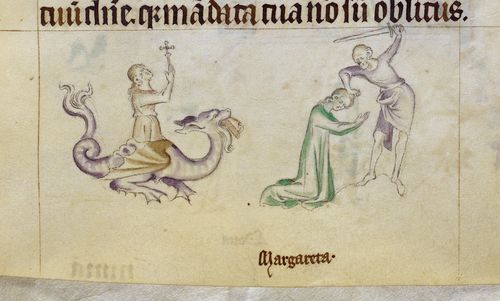 tuū dn̄e. qꝛ mādata tua nō sū oblitus.
Margareta.